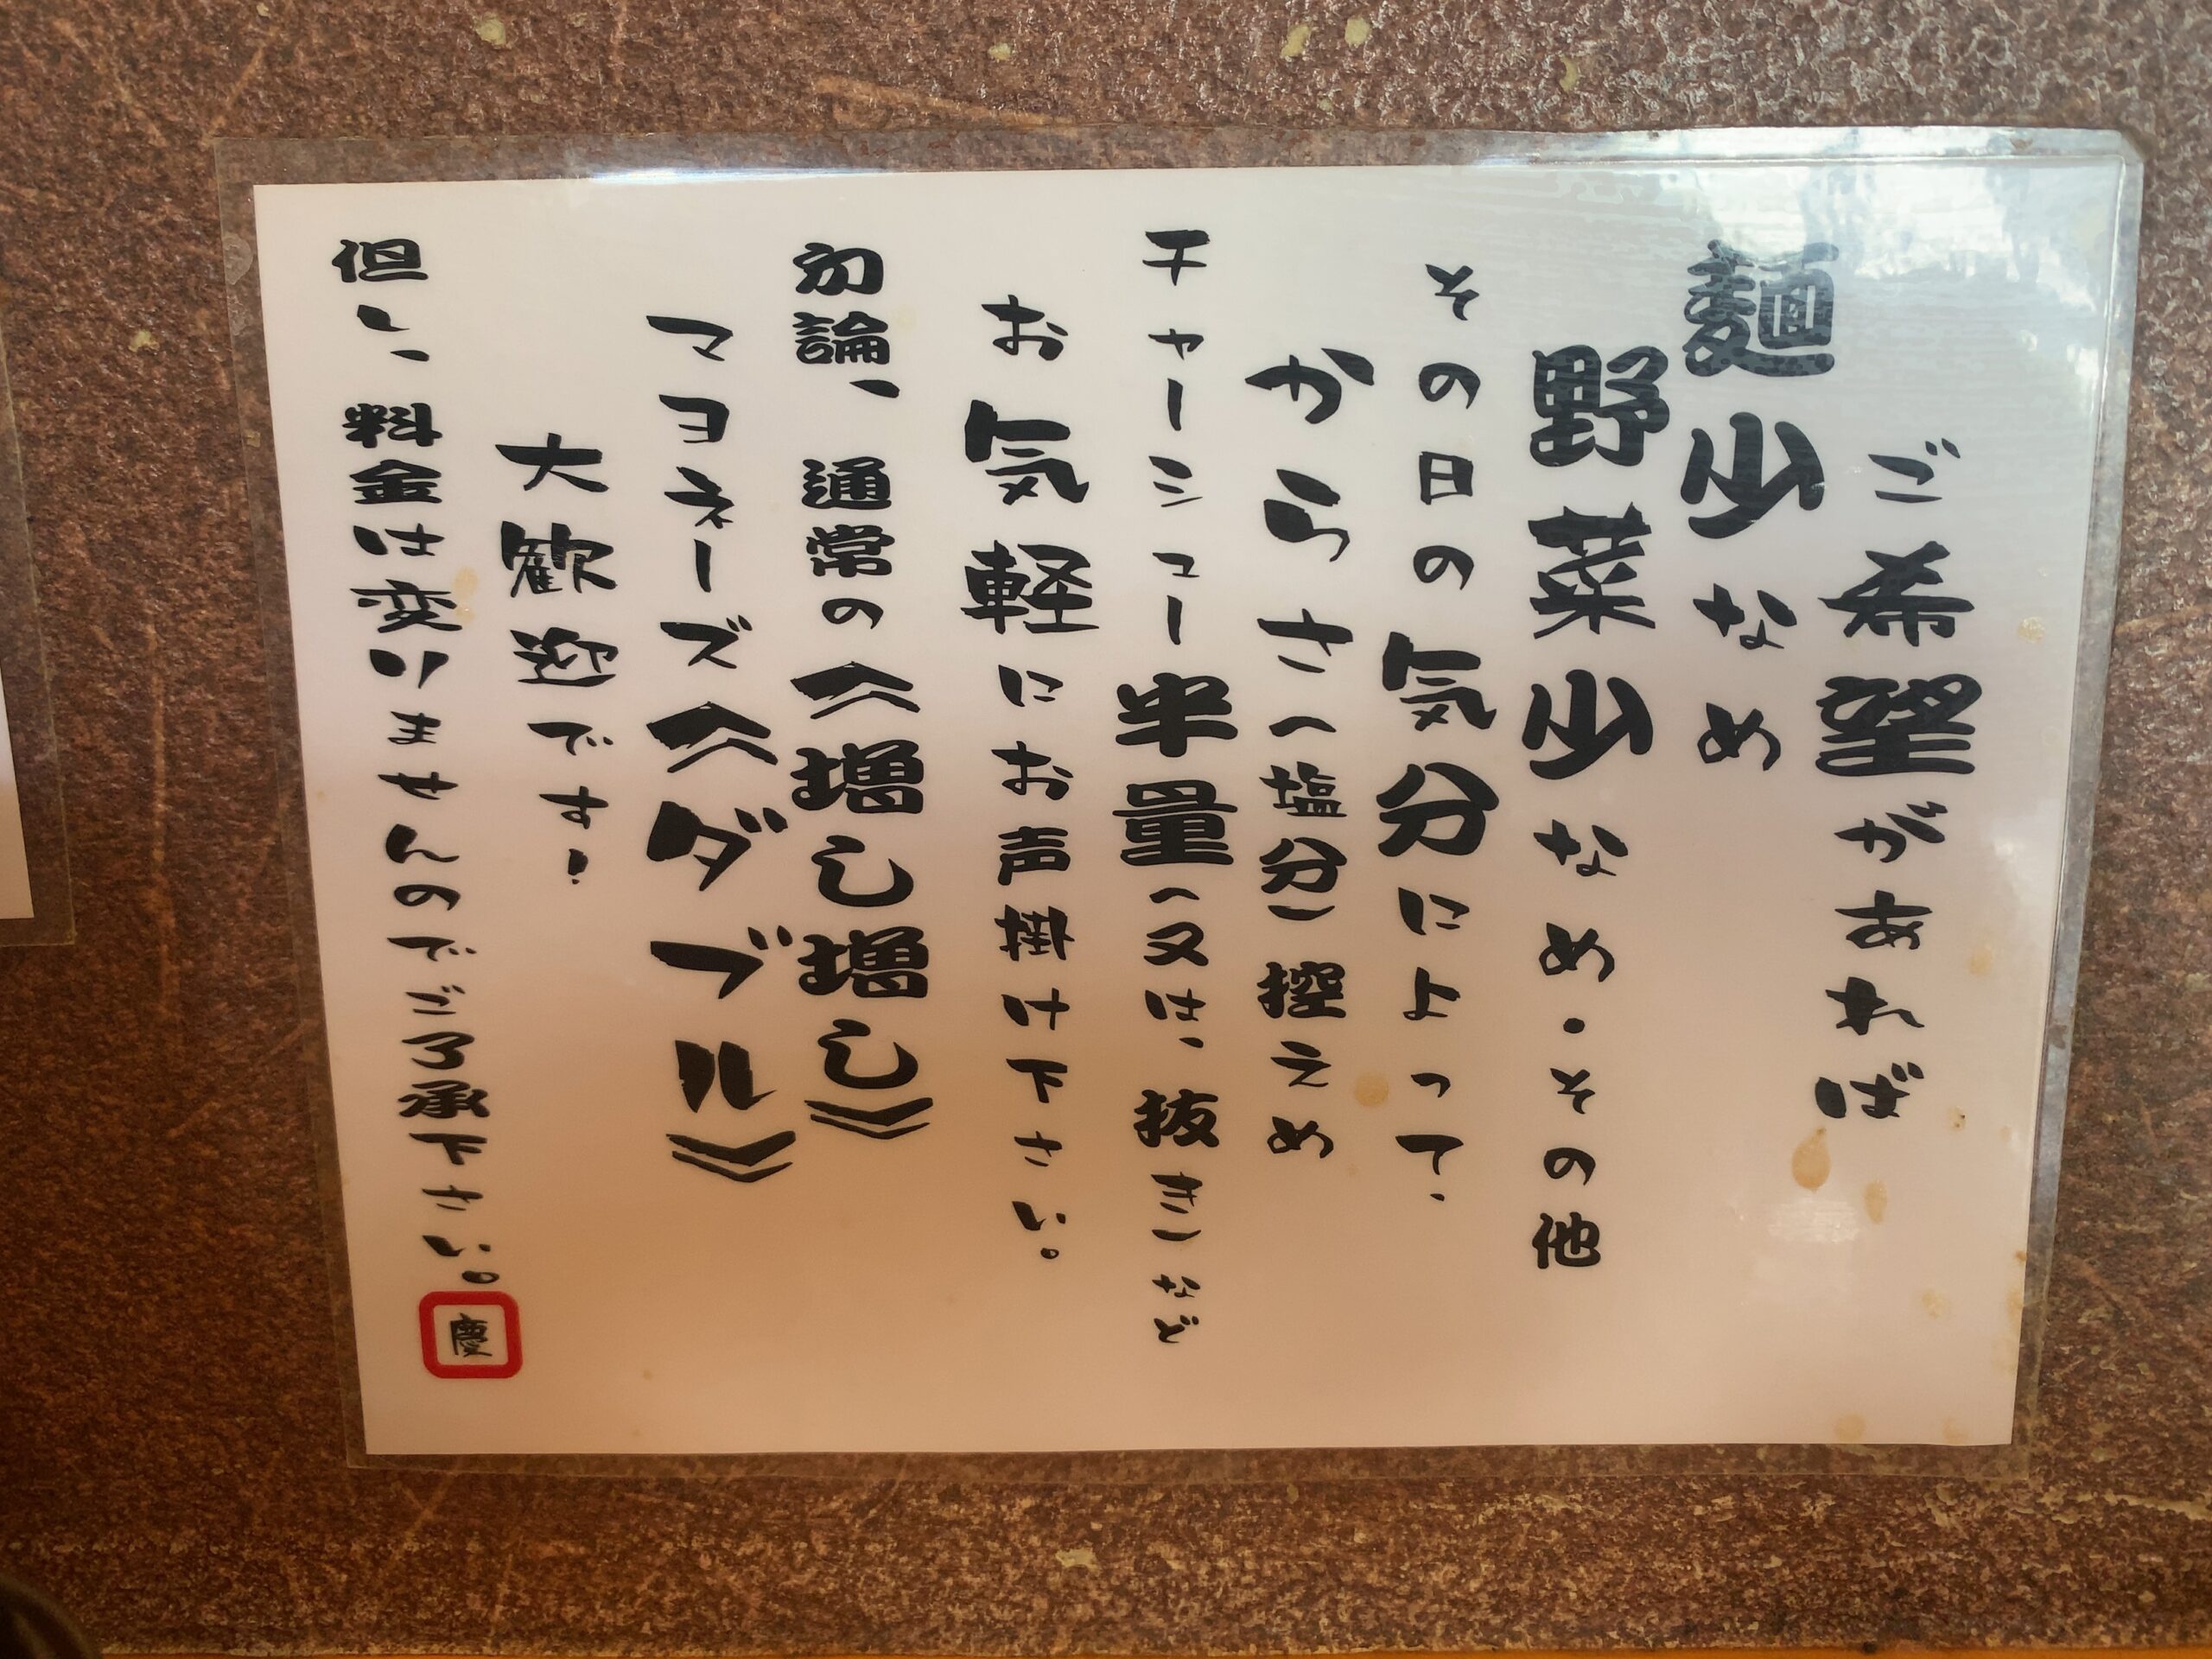 ご希望があれば
麺少なめ
野菜少なめ・その他
その日の気分によって、
からさ(塩分)控えめ
チャーシュー半量(又は、抜き)など
お気軽にお声掛け下さい。
勿論、通常の《増し増し》
マヨネーズ《ダブル》
大歓迎です!
但し、料金は変りませんのでご了承下さい。
慶